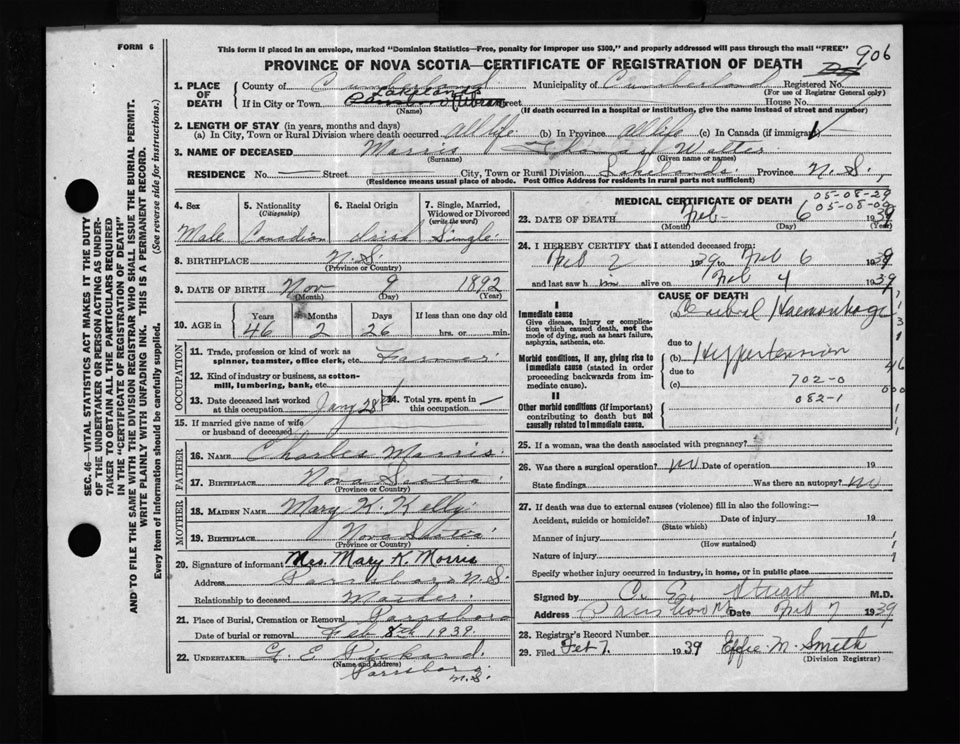 FORM 6
This form if placed in an envelope, marked "Dominion Statistics—Free, penalty for improper use $300," and properly addressed will pass through the mail "FREE"
906
PROVINCE OF NOVA SCOTIA—CERTIFICATE OF REGISTRATION OF DEATH
1. PLACE OF DEATH County of Cumberland Municipality of Cumberland Registered No.
(For use of Registrar General only)
If in City or Town Lakelands Street House No.
(Name) (If death occurred in a hospital or institution, give the name instead of street and number)
2. LENGTH OF STAY (in years, months and days)
(a) In City, Town or Rural Division where death occurred All life (b) In Province All life (c) In Canada (if immigrant) —
3. NAME OF DECEASED Morris Thomas Walter
(Surname) (Given name or names)
RESIDENCE No. — Street — City, Town or Rural Division Lakelands Province N.S.
(Residence means usual place of abode. Post Office Address for residents in rural parts not sufficient)
SEC. 46—VITAL STATISTICS ACT MAKES IT THE DUTY
OF THE UNDERTAKER OR PERSON ACTING AS UNDER-
TAKER TO OBTAIN ALL THE PARTICULARS REQUIRED
IN THE "CERTIFICATE OF REGISTRATION OF DEATH"
AND TO FILE THE SAME WITH THE DIVISION REGISTRAR WHO SHALL ISSUE THE BURIAL PERMIT.
WRITE PLAINLY WITH UNFADING INK. THIS IS A PERMANENT RECORD.
Every item of information should be carefully supplied. (See reverse side for instructions.)
4. Sex 5. Nationality (Citizenship) 6. Racial Origin 7. Single, Married, Widowed or Divorced (write the word)
Male Canadian Irish Single
8. BIRTHPLACE N.S.
(Province or Country)
9. DATE OF BIRTH Nov 9 1892
(Month) (Day) (Year)
10. AGE in Years Months Days If less than one day old
46 2 26 hrs. or min.
OCCUPATION
11. Trade, profession or kind of work as spinner, teamster, office clerk, etc. Farmer
12. Kind of industry or business, as cotton-mill, lumbering, bank, etc.
13. Date deceased last worked at this occupation Jany 28th 14. Total yrs. spent in this occupation —
15. If married give name of wife or husband of deceased
FATHER
16. NAME Charles Morris
17. BIRTHPLACE Nova Scotia
(Province or Country)
MOTHER
18. MAIDEN NAME Mary K. Kelly
19. BIRTHPLACE Nova Scotia
(Province or Country)
20. Signature of informant Mrs. Mary K. Morris
Address Parrsboro N.S.
Relationship to deceased Mother
21. Place of Burial, Cremation or Removal Parrsboro
Date of burial or removal Feb 8th 1939.
22. UNDERTAKER G. E.
(Name and Address) Parrsboro N.S.
MEDICAL CERTIFICATE OF DEATH
05-08-29
05-08-00
23. DATE OF DEATH Feb 6 1939
(Month) (Day) (Year)
24. I HEREBY CERTIFY that I attended deceased from:
Feb 2 1939 to Feb 6 1939
and last saw him alive on Feb 4 1939
CAUSE OF DEATH
I
Immediate cause
Give disease, injury or complication which caused death, not the mode of dying, such as heart failure, asphyxia, asthenia, etc.
(a) Cerebral Haemorrhage
due to
Morbid conditions, if any, giving rise to immediate cause (stated in order proceeding backwards from immediate cause).
(b) Hypertension
due to
(c) 702-0
082-1
II
Other morbid conditions (if important) contributing to death but not causally related to immediate cause.
25. If a woman, was the death associated with pregnancy?
26. Was there a surgical operation? no Date of operation 19
State findings Was there an autopsy? no
27. If death was due to external causes (violence) fill in also the following:—
Accident, suicide or homicide? Date of injury 19
(State which)
Manner of injury
(How sustained)
Nature of injury
Specify whether injury occurred in industry, in home, or in public place
Signed by C. E. Stuart M.D.
Address Parrsboro Date Feb 7 1939
28. Registrar's Record Number
29. Filed Feb 7. 1939 Effie M. Smith
(Division Registrar)